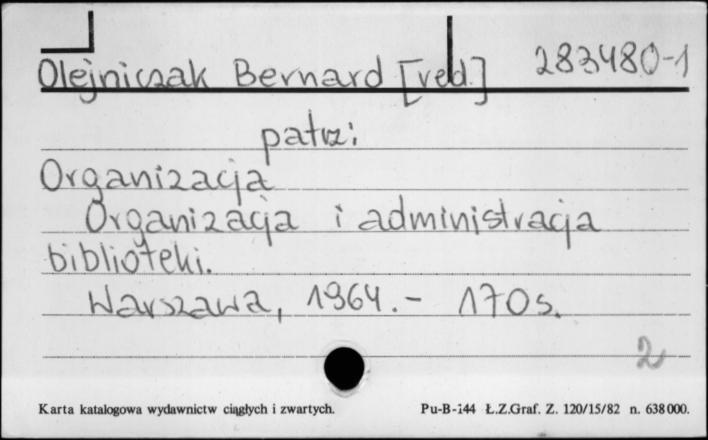 Olejniczak Bernard [red.] 283480-1
patrz:
Organizacja
Organizacja i administracja
biblioteki.
Warszawa, 1964.- 170 s.
2
Karta katalogowa wydawnictw ciągłych i zwartych. Pu-B-144 Ł.Z.Graf. Z. 120/15/82 n. 638 000.